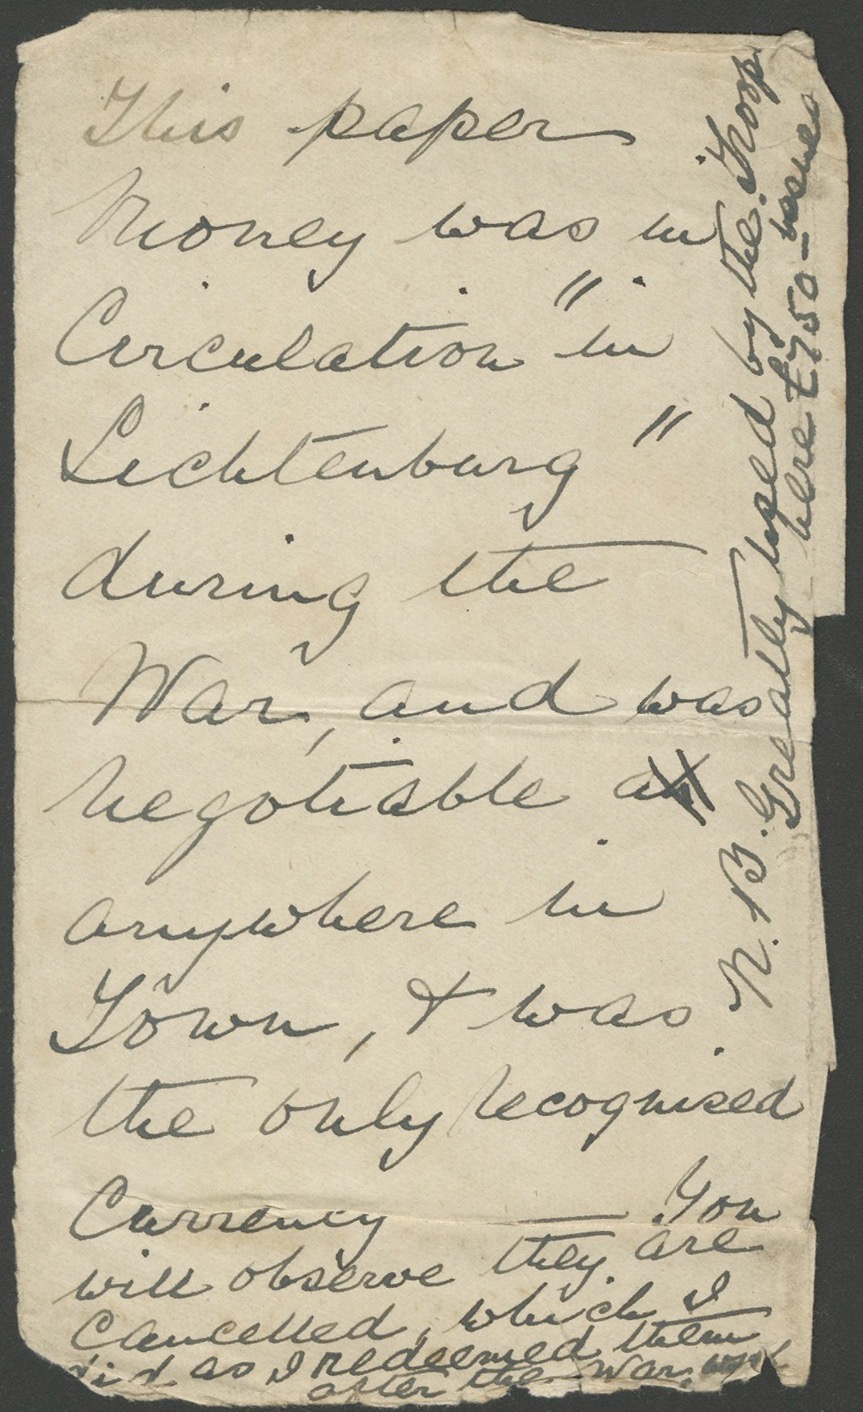 This paper
Money was in
Circulation "in
Lichtenburg"
during the
War, and was
negotiable
anywhere in
Town, & was
the only recognised
Currency — You
will observe they are
Cancelled, which I
did as I redeemed them
after the War.
N.B. Greatly used by the Troops
here £750 — issued